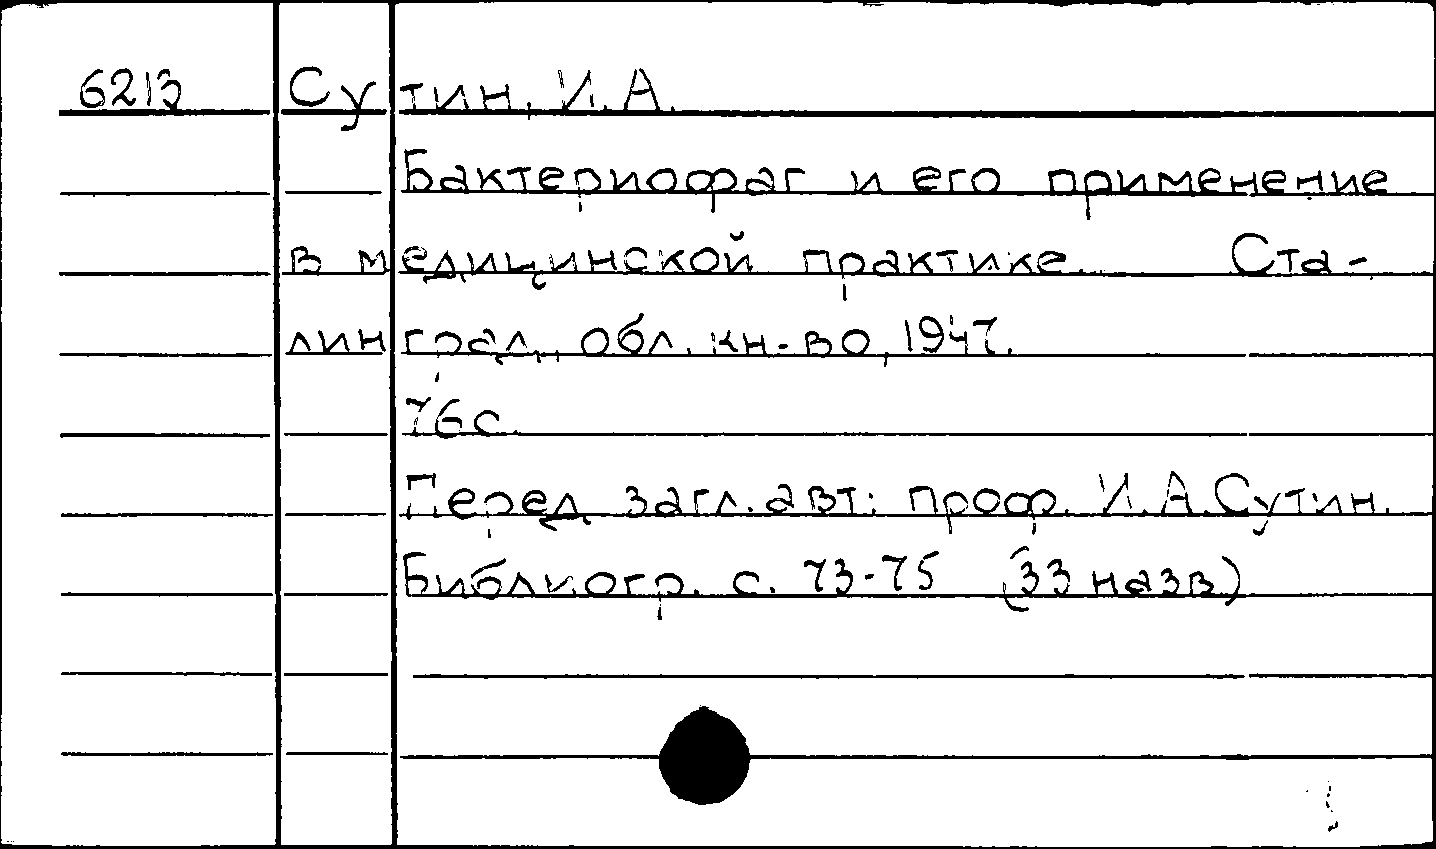 6213 Сутин, И.А.
Бактериофаг и его применение
в медицинской практике. Ста-
линград, обл. кн-во, 1947.
76 с.
Перед загл. авт: проф. И.А. Сутин.
Библиогр. с. 73-75 (33 назв)